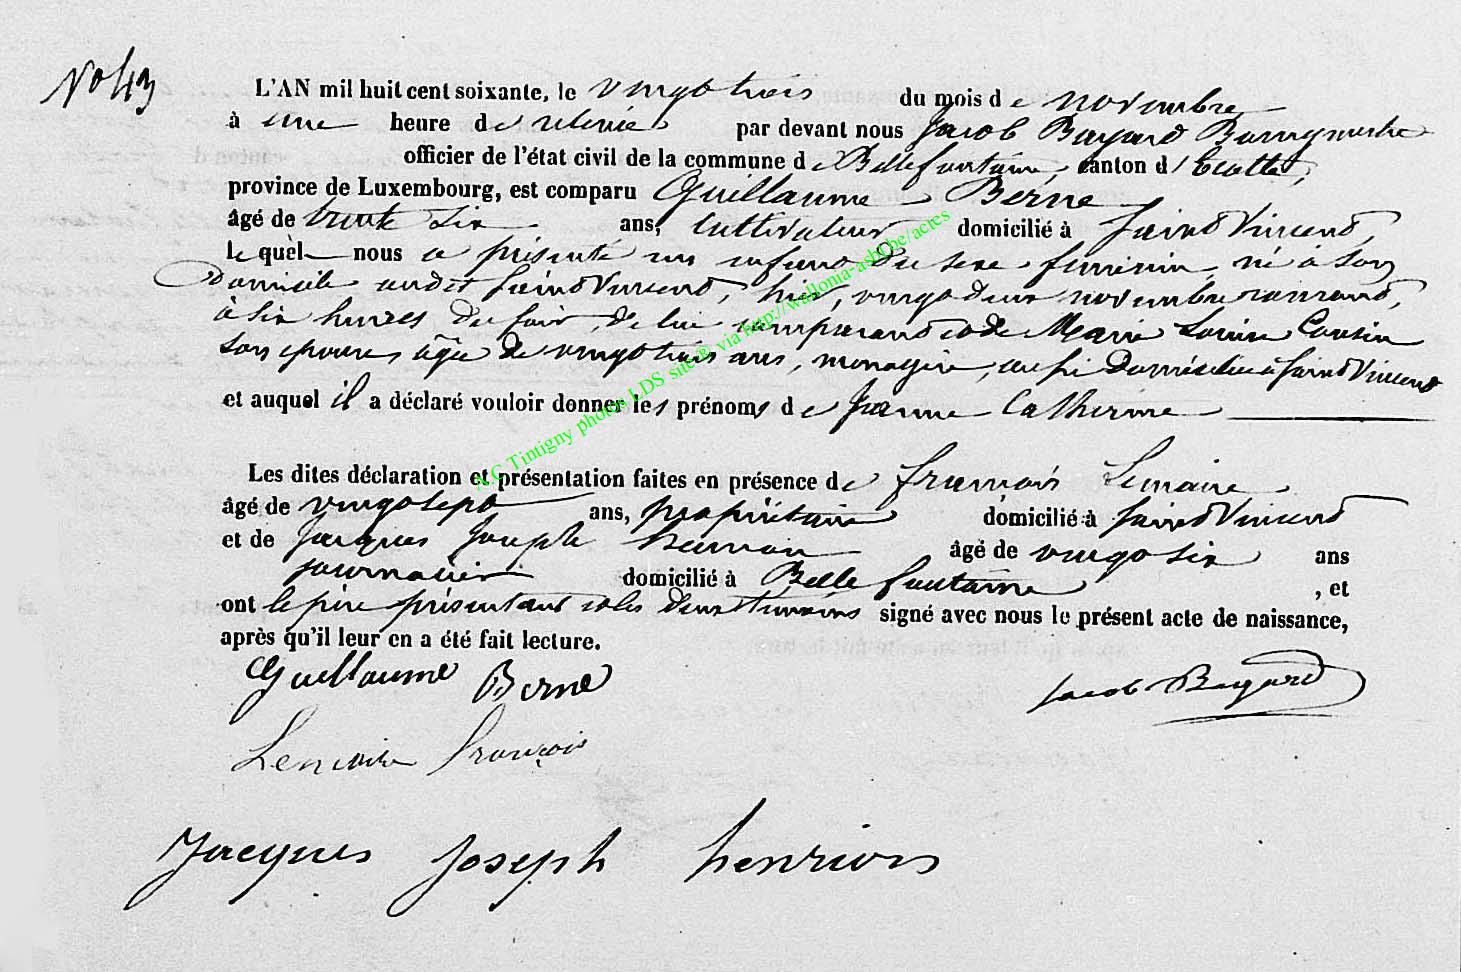 No 43
L'AN mil huit cent soixante, le vingt trois du mois de novembre
à une heure de relevée par devant nous Jacob Bayard Bourgmestre
officier de l'état civil de la commune de Bellefontaine, canton d'Etalle,
province de Luxembourg, est comparu Guillaume Berne
âgé de trente six ans, cultivateur domicilié à Saint Vincent,
lequel nous a présenté un enfant du sexe féminin, né à son
domicile audit Saint Vincent, hier, vingt deux novembre courant,
à six heures du soir, de lui comparant et de Marie Louise Cousin
son épouse âgée de vingt trois ans, ménagère, aussi domiciliée à Saint Vincent
et auquel il a déclaré vouloir donner les prénoms de Jeanne Catherine
Les dites déclaration et présentation faites en présence de François Lemaire
âgé de vingt sept ans, propriétaire domicilié à Saint Vincent
et de Jacques Joseph henrion âgé de vingt six ans
journalier domicilié à Bellefontaine, et
ont le père présentant et les deux témoins signé avec nous le présent acte de naissance,
après qu'il leur en a été fait lecture.
Guillaume Berne
Jacob Bayard
Lemaire françois
Jacques Joseph henrion
A.C Tintigny photos LDS site® via http://wallonia-asbl.be/actes